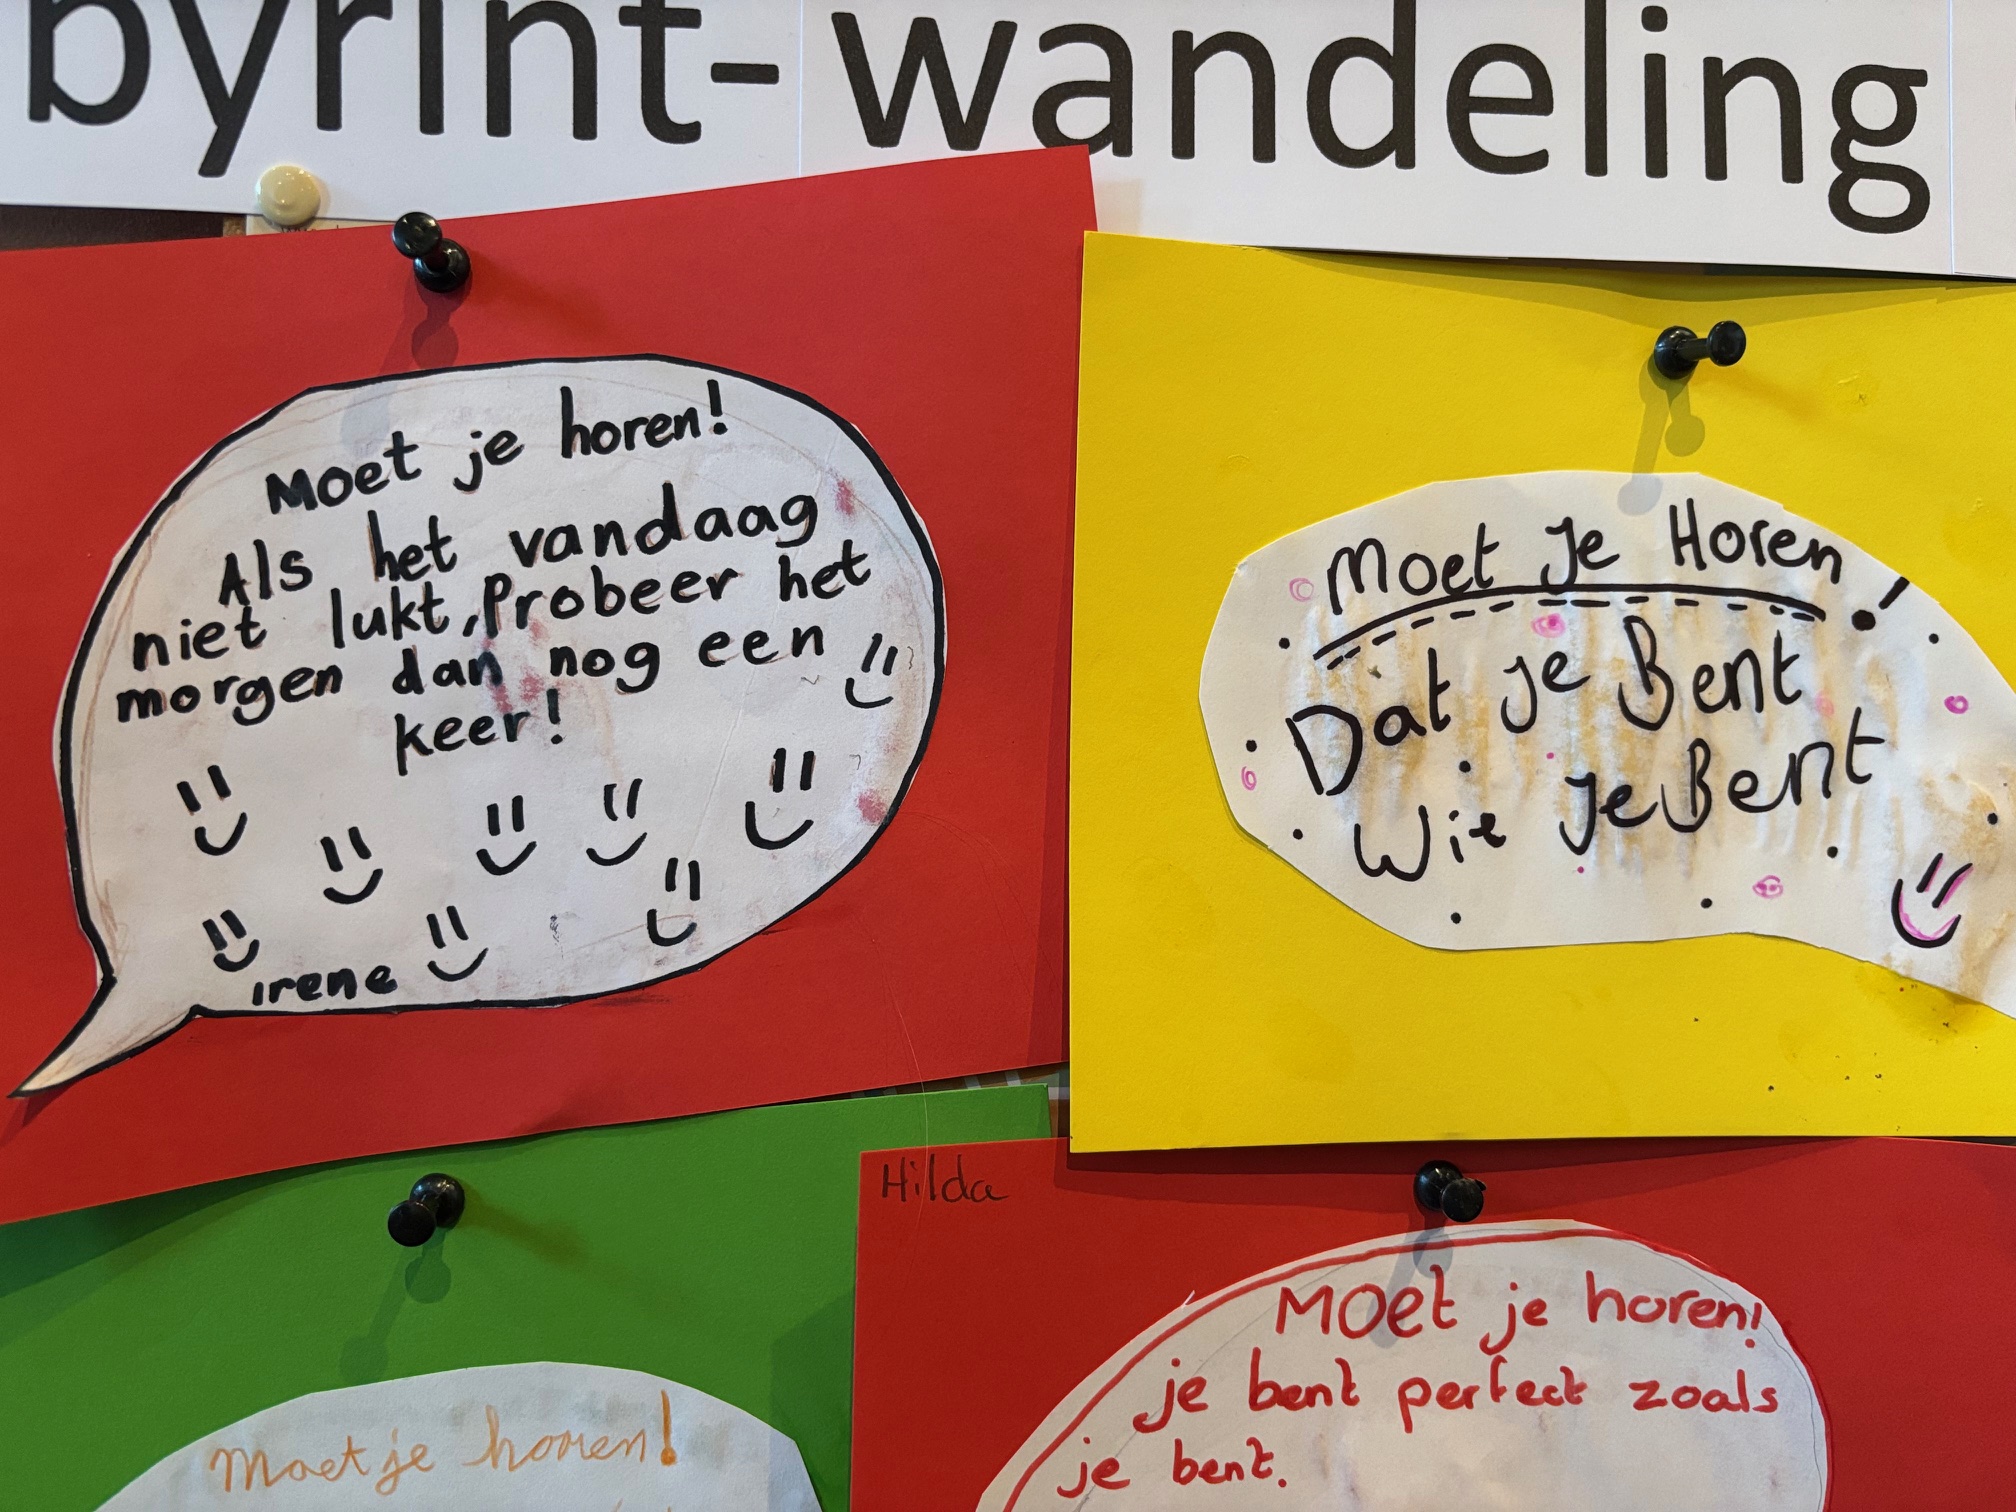 byrint-wandeling
Moet je horen!
Als het vandaag
niet lukt, Probeer het
morgen dan nog een
keer!
irene
Moet Je Horen!
Dat je Bent
Wie Je Bent
Hilda
Moet je horen!
je bent perfect zoals
je bent.
Moet je horen!